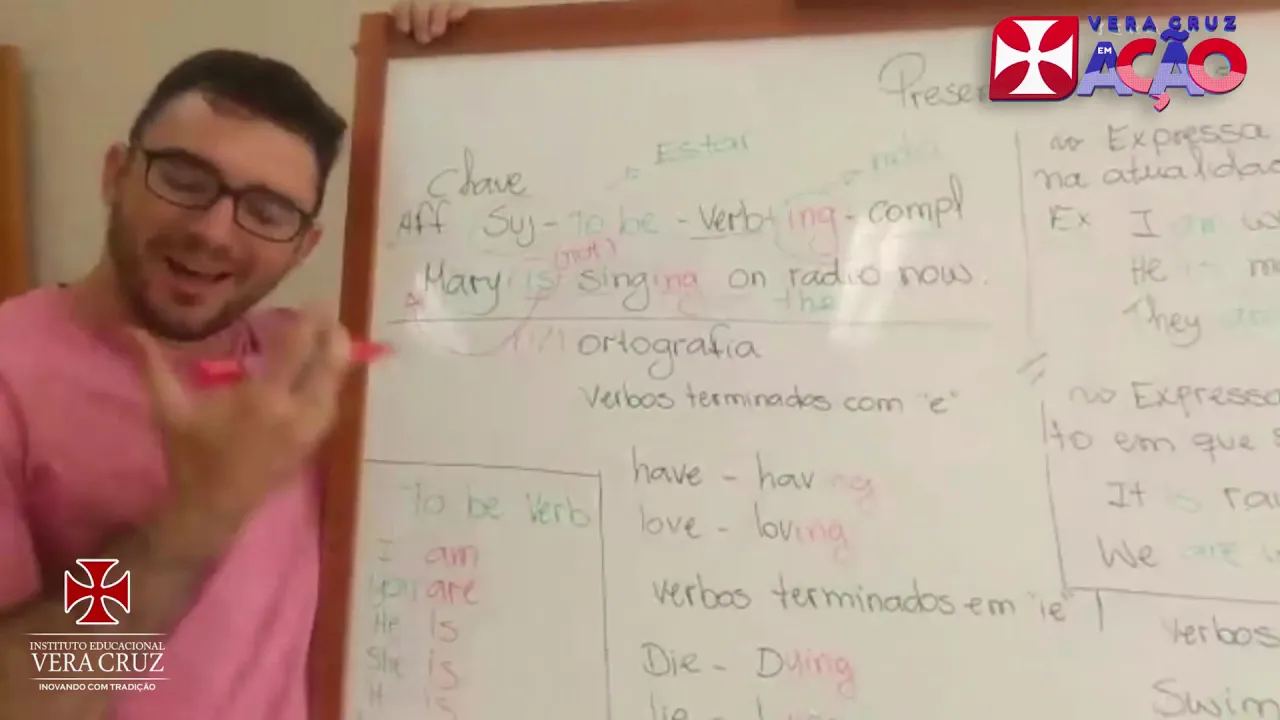 VERA CRUZ
EM
AÇÃO
Presen
Estar
Chave
Aff Suj - To be - Verb + ing - compl
(not)
Mary is singing on radio now.
the
ortografia
Verbos terminados com "e"
have - having
love - loving
verbos terminados em "ie"
Die - Dying
To be Verb
I am
You are
He is
She is
is
Expressa
na atualidad
Ex I am w
He is
They are
Expressa
to em que
It is rai
We are
Verbos
Swim
INSTITUTO EDUCACIONAL
VERA CRUZ
INOVANDO COM TRADIÇÃO